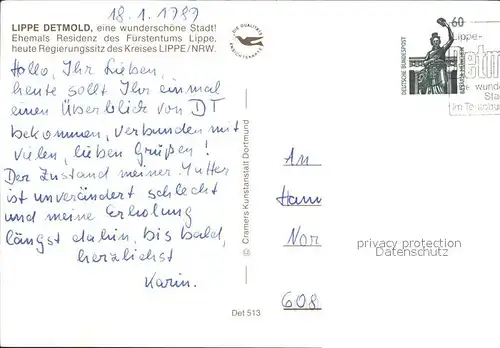 18.1.1989
LIPPE DETMOLD, eine wunderschöne Stadt!
Ehemals Residenz des Fürstentums Lippe,
heute Regierungssitz des Kreises LIPPE/NRW.
DIE QUALITÄTS
ANSICHTSKARTE
Hallo, Ihr Lieben,
heute sollt Ihr einmal
einen Überblick von DT
bekommen, verbunden mit
vielen, lieben Grüßen!
Der Zustand meiner Mutter
ist unverändert schlecht
und meine Erholung
längst dahin, bis bald,
herzlichst
Karin.
© Cramers Kunstanstalt Dortmund
Det 513
60
DEUTSCHE BUNDESPOST
BAVARIA MÜNCHEN
Lippe-
Detm
wunde
Sta
im Teutobu
An
Ham
Nor
608
privacy protection
Datenschutz